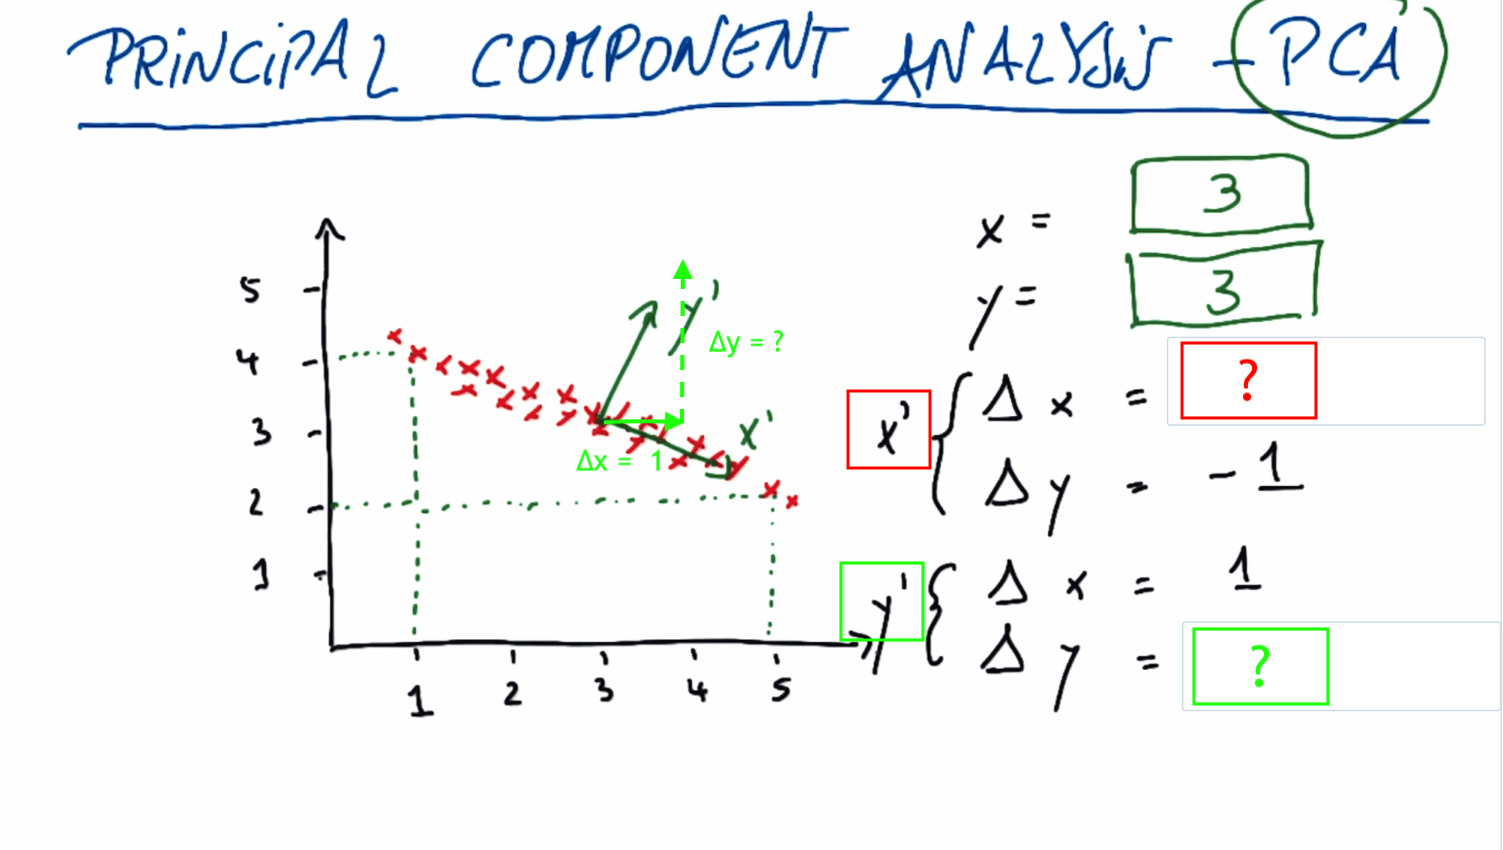 PRINCIPAL COMPONENT ANALYSIS - PCA
x = 3
y = 3
5
4
3
2
1
1 2 3 4 5
y'
Δy = ?
x'
Δx = 1
x' { Δ x = ?
Δ y = - 1
y' { Δ x = 1
Δ y = ?